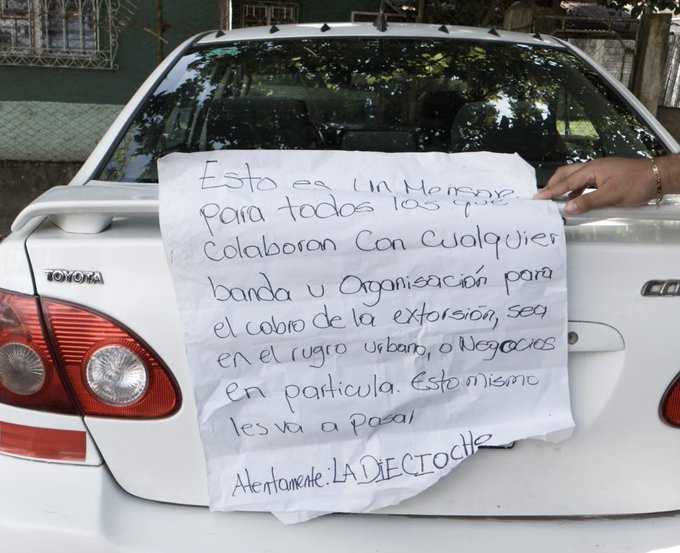 Esto es un Mensaje
para todos los que
colaboran Con Cualquier
banda u Organisación para
el cobro de la extorsión, sea
en el rugro urbano, o Negocios
en particula. Esto mismo
les va a pasar
Atentamente: LA DIECIOCHO
TOYOTA
CO